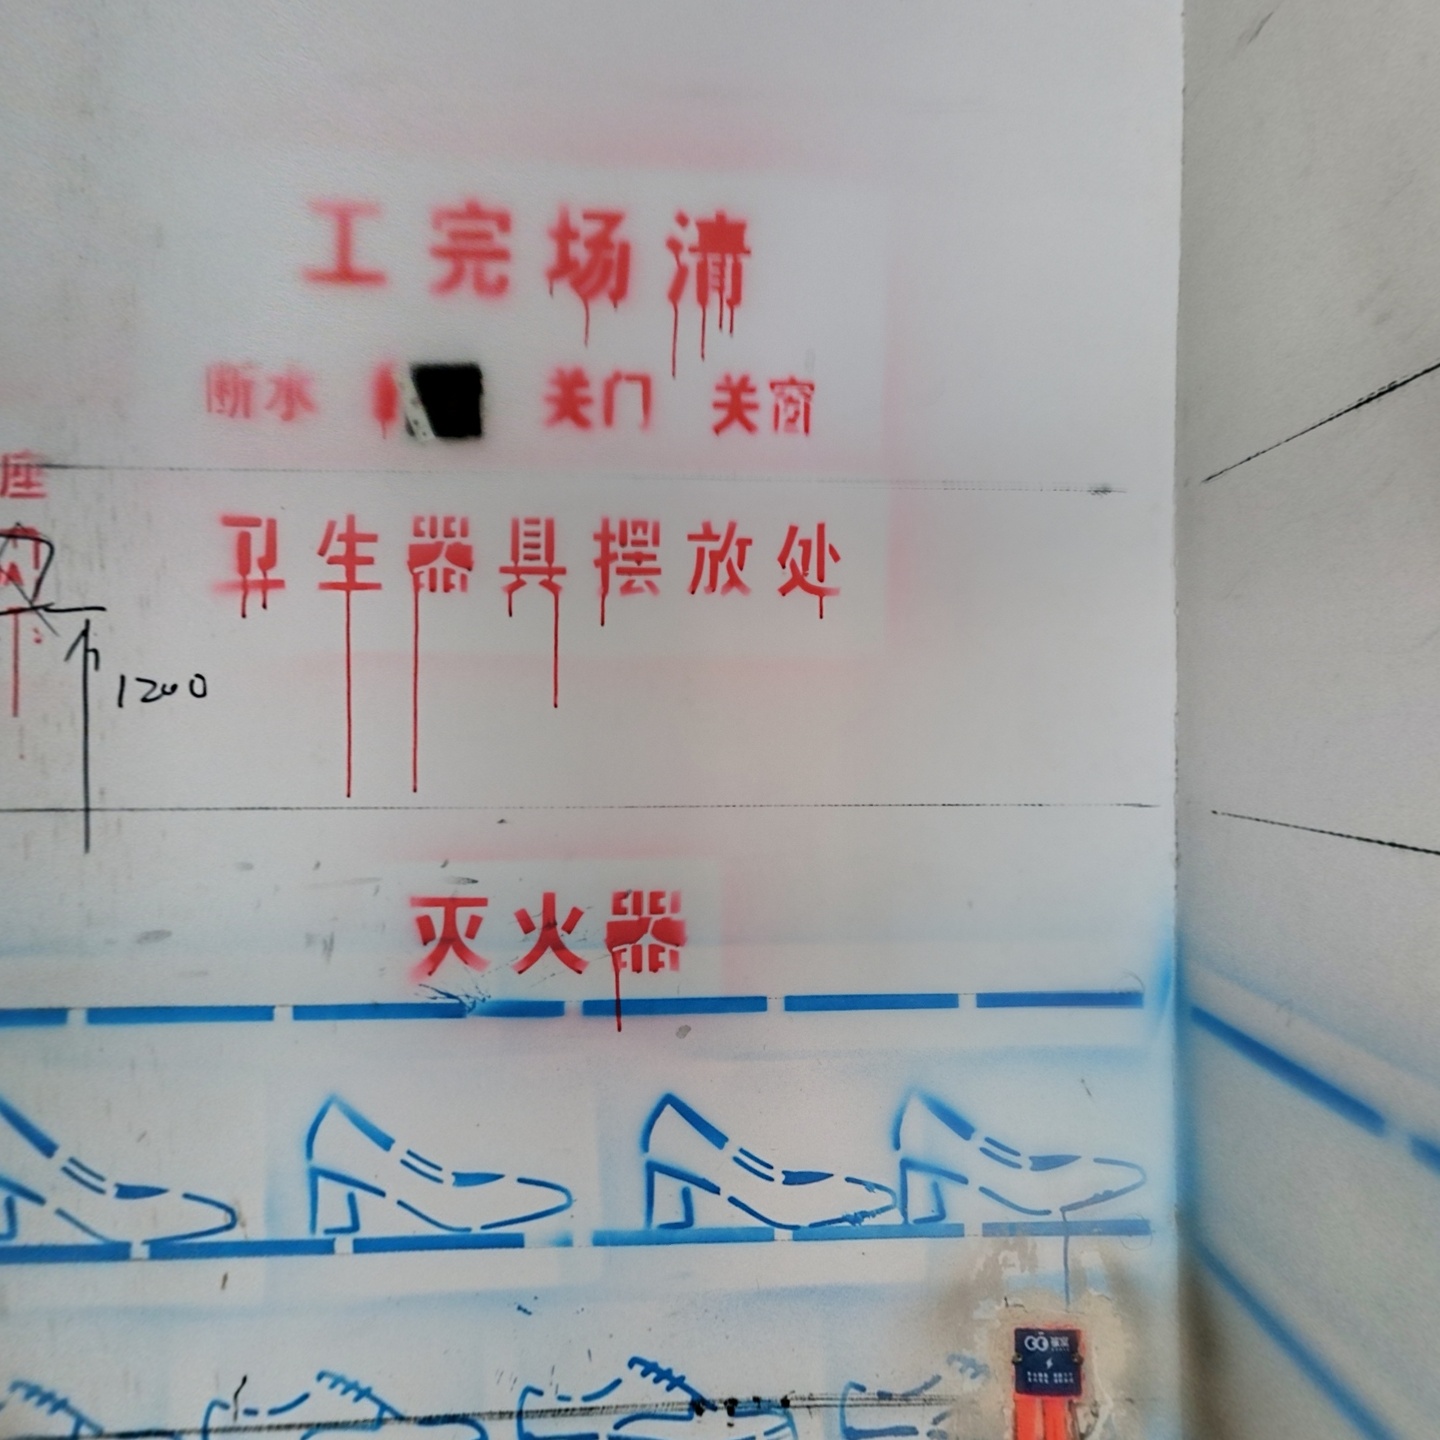 工完场清
断水 关门 关窗
座
卫生器具摆放处
1200
灭火器